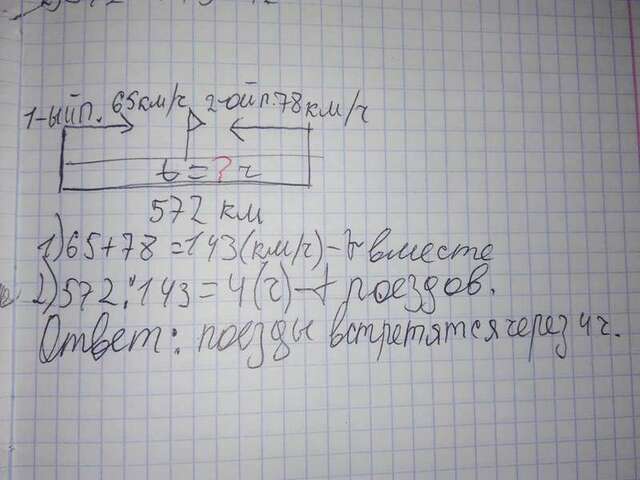 1-ый п. 65км/ч 2-ой п. 78км/ч
t = ? ч
572 км
1) 65+78 =143(км/ч)-t вместе
2) 572:143=4(ч)-t поездов.
Ответ: поезды встретятся через 4 ч.